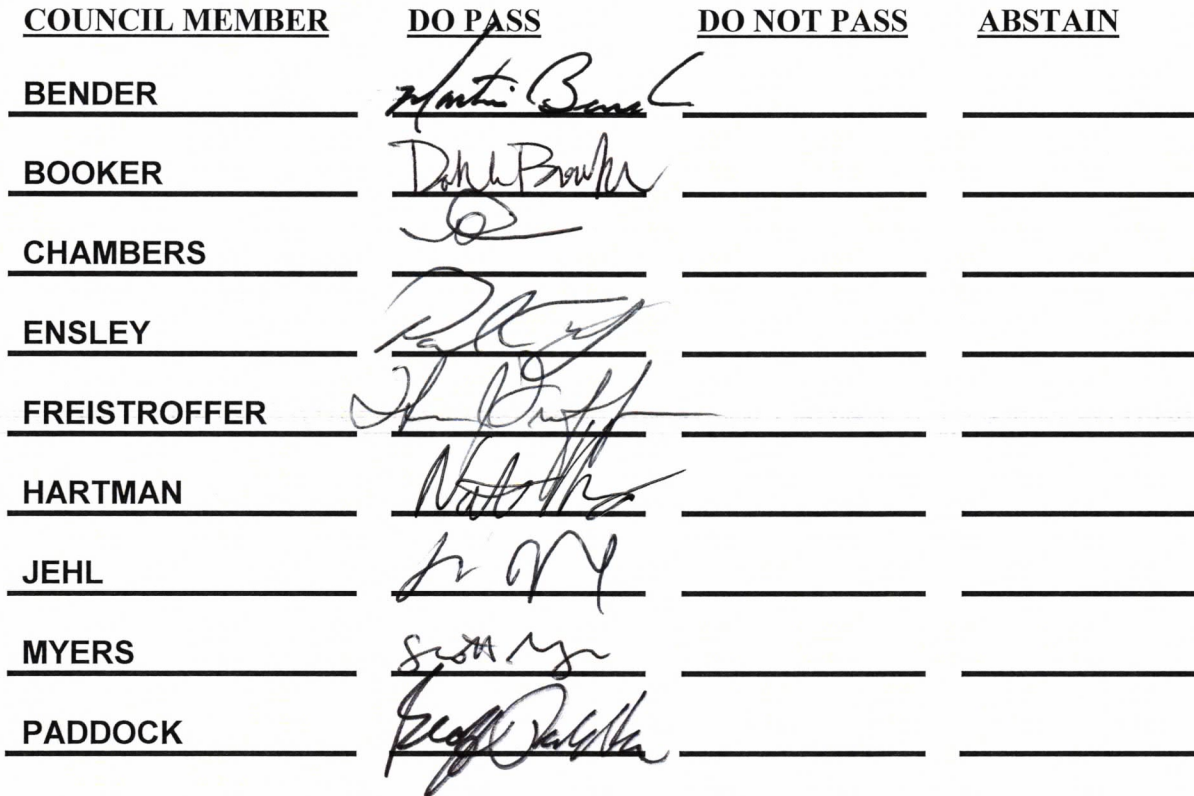 COUNCIL MEMBER DO PASS DO NOT PASS ABSTAIN
BENDER Martin Bend
BOOKER
CHAMBERS
ENSLEY
FREISTROFFER
HARTMAN
JEHL
MYERS Scott Myer
PADDOCK Geoff Paddock